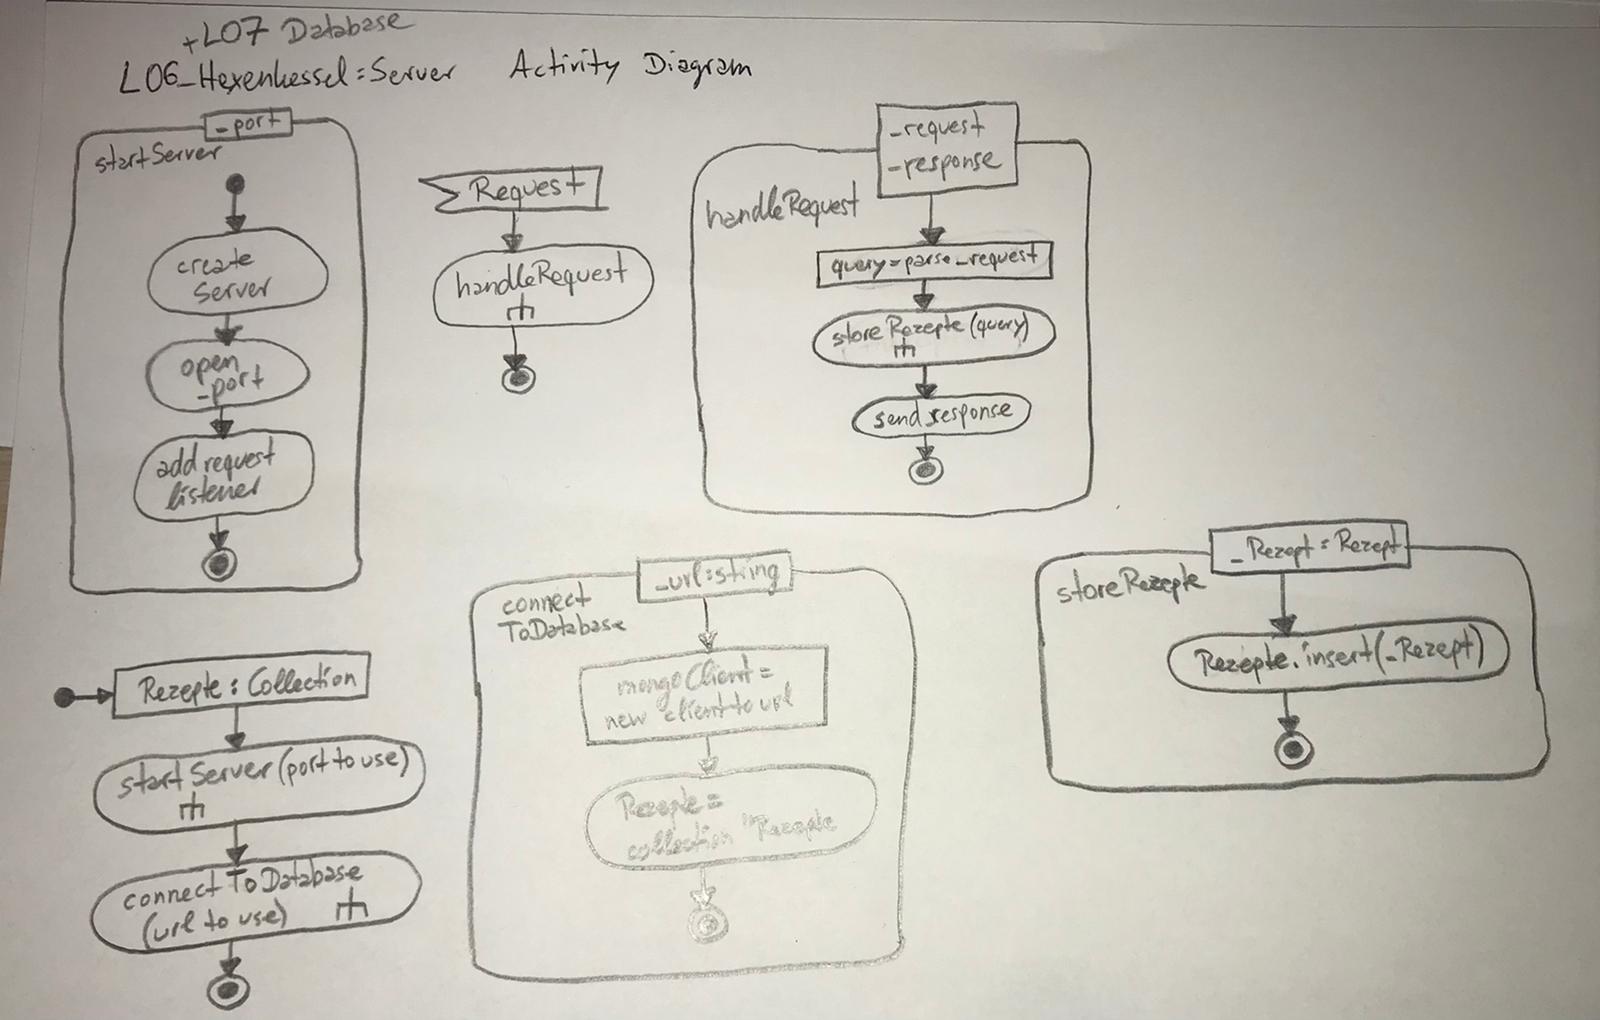 +L07 Database
L06_Hexenkessel:Server Activity Diagram
_port
startServer
create
Server
open
_port
add request
listener
Request
handleRequest
_request
_response
handleRequest
query=parse_request
storeRezepte(query)
send_response
Rezepte: Collection
startServer(port to use)
connectToDatabase
(url to use)
_url:string
connect
ToDatabase
mongoClient =
new client to url
Rezepte =
collection "Rezepte
_Rezept : Rezept
storeRezepte
Rezepte.insert(_Rezept)